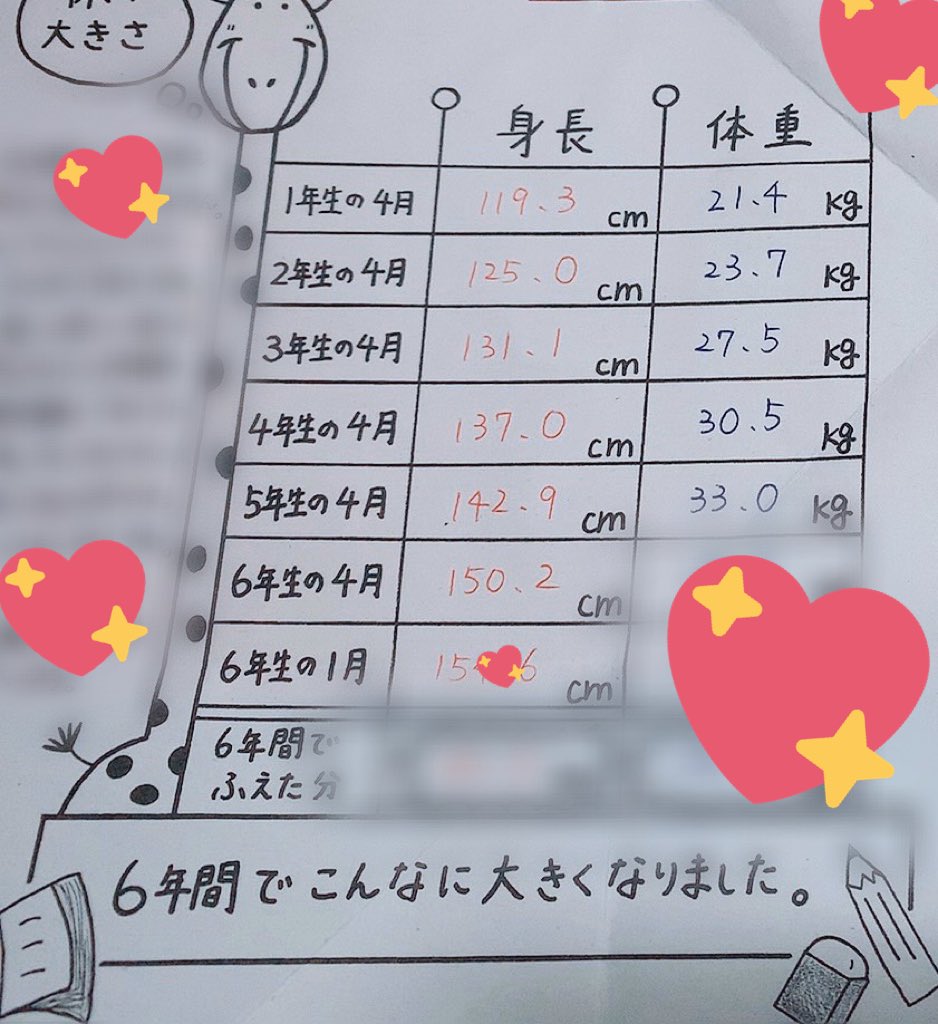 大きさ
身長 体重
1年生の4月 119.3 cm 21.4 kg
2年生の4月 125.0 cm 23.7 kg
3年生の4月 131.1 cm 27.5 kg
4年生の4月 137.0 cm 30.5 kg
5年生の4月 142.9 cm 33.0 kg
6年生の4月 150.2 cm
6年生の1月 cm
6年間で
ふえた分
6年間でこんなに大きくなりました。